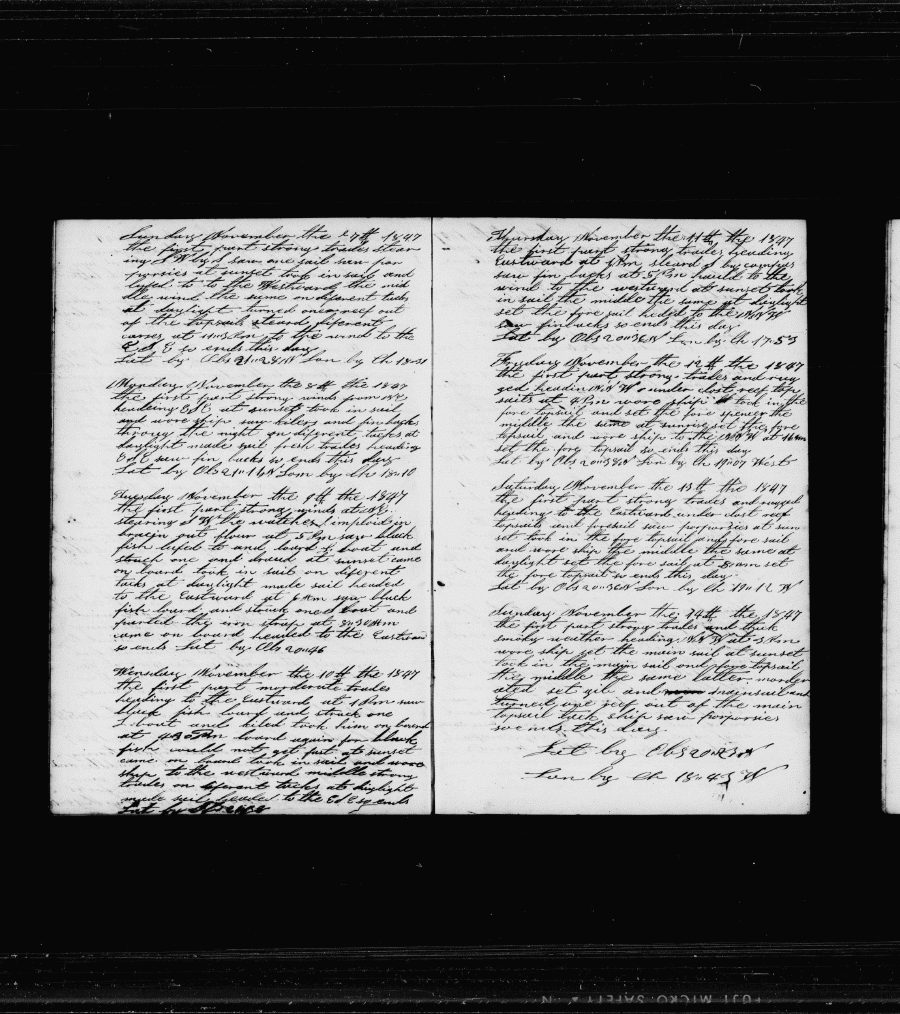 Sunday November the 7th 1847
the first part strong trades steer-
ing S W by S saw one sail saw por
porsies at sunset took in sail and
lufed to to the Westward the mid
dle wind the same on diferent tacks
at daylight turned one reef out
of the topsails steard diferent
corses at to the wind to the
E S E so ends this day
Lat by Obs 21 28 N Lon by Ch 18
Monday November the 8th the 1847
the first part strong winds from
heading at sunset took in sail
and wore ship saw kilers and fin backs
throug the night on different tacks at
daylight made sail fresh trades heading
saw fin backs so ends this day
Lat by Obs 21 16 N Lom by Ch 18 10
Tuesday November the 9th the 1847
the first part strong winds at
stearing S W the watches imploid in
out flour at 5 Pm saw black
fish lufed to and board boat and
struck one and at sunset came
on board took in sail on diferent
tacks at daylight made sail headed
to the Eastward at 8 Am saw black
fish loard and struck one boat and
parted the iron strap at 30 Am
came on board headed to the Eastward
so ends Lat by Obs 20 46
Wensday November the 10th the 1847
the first part morderate trades
heading to the Eastward at 1 Pm saw
black fish loard and struck one
S boat and killed took him on board
at 4 Pm loard again for black
fish could not get fast at sunset
came on board took in sail and wore
ship to the westward middle strong
trades on diferent tacks at daylight
made sail headed to the so ends
Lat by Obs
Thursday November the 11th the 1847
the first part strong trades heading
Eastward at 1 Pm steard S by compass
saw fin backs at 5 Pm hauld to the
wind to the westward at sunset took
in sail the middle the same at daylight
set the fore sail heded to the W
saw finbacks so ends this day
Lat by Obs 20 36 N Lon by Ch 17 53
Fryday November the 12th the 1847
the first part strong trades and rug
ged headin W under clost reef top
sails at 4 Pm wore ship took in the
fore topsail and set the fore spencer the
middle the same at sunrise set the fore
topsail and wore ship to the at
set the fore topsail so ends this day
Lat by Obs 20 38 N Lon by Ch 19 07 West
Saturday November the 13th the 1847
the first part strong trades and rugged
heading to the Eastward under clost reef
topsails and foresail saw porporsies at sun
set took in the fore topsail and fore sail
and wore ship the middle the same at
daylight set the fore sail at 8 am set
the fore topsail so ends this day
Lat by Obs 20 36 N Lon by Ch 19 12 W
Sunday November the 14th the 1847
the first part strong trades and thick
smoky weather heading W at 3 Pm
wore ship set the main sail at sunset
took in the main sail and fore topsail
the middle the same latter morder
ated set gib and mainsail and
turned one reef out of the main
topsail tack ship saw porporsies
so ends this day
Lat by Obs 20 23 N
Lon by Ch 18 43 W
FUJI MICRO SAFETY N